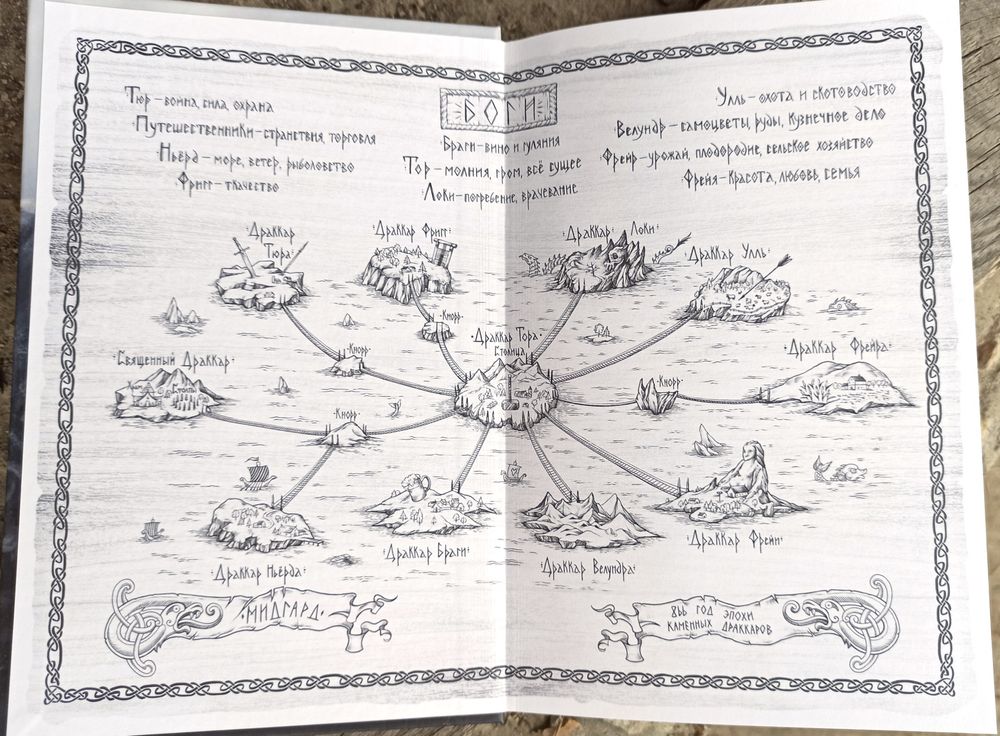 БОГИ
Тюр – война, сила, охрана
Путешественники – странствия, торговля
Ньёрд – море, ветер, рыболовство
Фригг – ткачество
Браги – вино и гуляния
Тор – молния, гром, всё сущее
Локи – погребение, врачевание
Улль – охота и скотоводство
Велундр – самоцветы, руды, кузнечное дело
Фрейр – урожай, плодородие, сельское хозяйство
Фрейя – красота, любовь, семья
·Драккар
Тюра·
·Драккар Фригг·
·Драккар Локи·
·Драккар Улль·
·Кнорр·
·Драккар Тора·
Столица
·Кнорр·
·Священный Драккар·
·Драккар Фрейра·
·Кнорр·
·Кнорр·
·Драккар Ньёрда·
·Драккар Браги·
·Драккар Велундра·
·Драккар Фрейи·
·МИДГАРД·
866 ГОД ЭПОХИ
КАМЕННЫХ ДРАККАРОВ